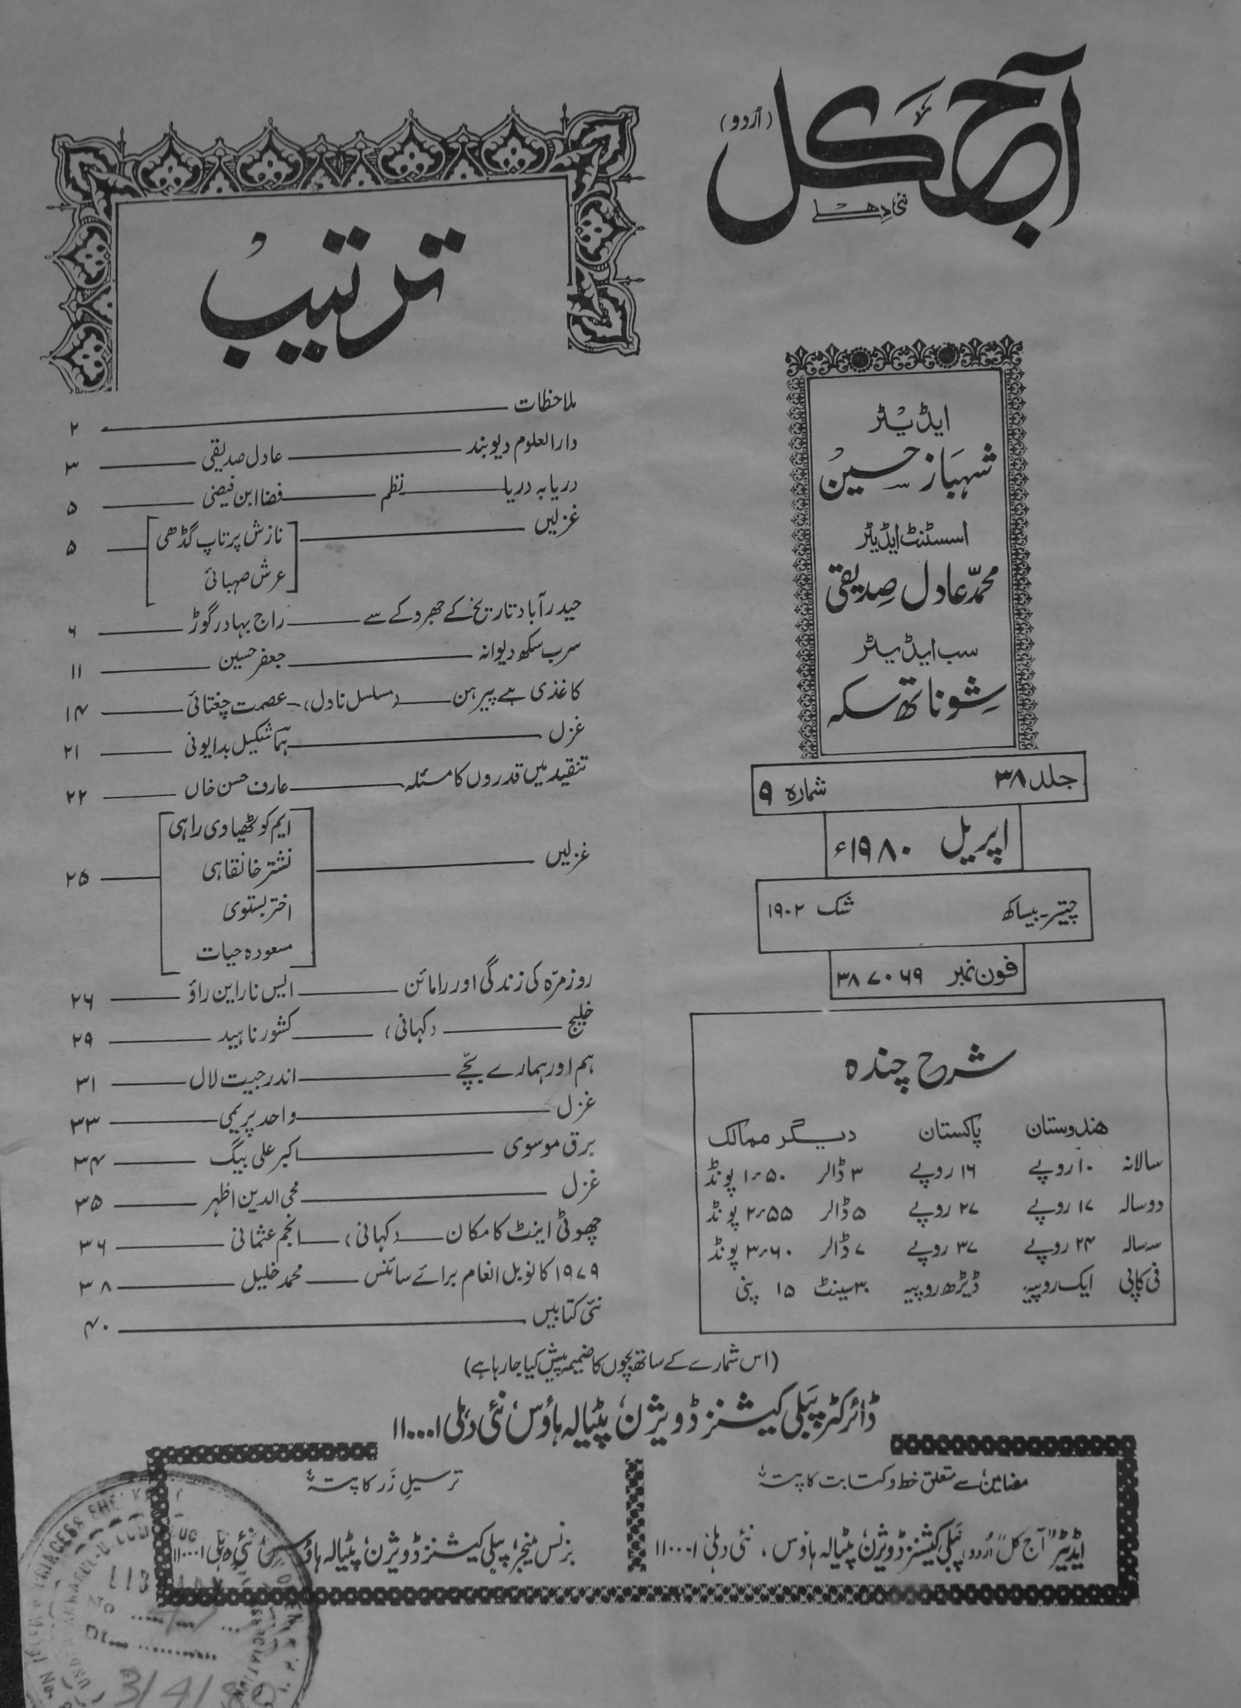 آج کل
(اُردو)
نئی دھلے
ایڈیٹر
شہباز حسین
اسسٹنٹ ایڈیٹر
محمّد عادل صدیقی
سب ایڈیٹر
شوناتھ سکہ
جلد ۳۸ شمارہ ۹
اپریل ۱۹۸۰ء
چیتر۔بیساکھ شک ۱۹۰۲
فون نمبر ۳۸۷۰۶۹
شرح چندہ
ھندوستان پاکستان دیگر ممالک
سالانہ ۱۰ روپے ۱۶ روپے ۳ ڈالر ۱٫۵۰ پونڈ
دو سالہ ۱۷ روپے ۲۷ روپے ۵ ڈالر ۲٫۵۵ پونڈ
سہ سالہ ۲۴ روپے ۳۷ روپے ۷ ڈالر ۳٫۶۰ پونڈ
فی کاپی ایک روپیہ ڈیڑھ روپیہ ۳۰ سینٹ ۱۵ پنی
ترتیب
ملاحظات ۲
دارالعلوم دیوبند عادل صدیقی ۳
دریا بہ دریا نظم فضا ابن فیضی ۵
غزلیں نازش پرتاپ گڈھی ۵
عرش صہبائی
حیدرآباد تاریخ کے جھروکے سے راج بہادر گوڑ ۶
سرب سکھ دیوانہ جعفر حسین ۱۱
کاغذی ہے پیرہن (مسلسل ناول) عصمت چغتائی ۱۴
غزل ہما شکیل بدایونی ۲۱
تنقید میں قدروں کا مسئلہ عارف حسن خاں ۲۲
ایم کوٹھیاوی راہی
غزلیں نشتر خانقاہی ۲۵
اختر بستوی
مسعودہ حیات
روزمرّہ کی زندگی اور رامائن ایس نارائن راؤ ۲۶
خلیج (کہانی) کشور ناہید ۲۹
ہم اور ہمارے بچّے اندرجیت لال ۳۱
غزل واحد پریمی ۳۳
برق موسوی اکبر علی بیگ ۳۴
غزل محی الدین اظہر ۳۵
چھوٹی اینٹ کا مکان (کہانی) انجم عثمانی ۳۶
۱۹۷۹ کا نوبل انعام برائے سائنس محمد خلیل ۳۸
نئی کتابیں ۴۰
(اس شمارے کے ساتھ بچّوں کا ضمیمہ پیش کیا جا رہا ہے)
ڈائرکٹر پبلی کیشنز ڈویژن، پٹیالہ ہاؤس، نئی دہلی ۱۱۰۰۰۱
مضامین سے متعلق خط و کتابت کا پتہ:
ایڈیٹر "آج کل" اُردو، پبلی کیشنز ڈویژن، پٹیالہ ہاؤس، نئی دہلی ۱۱۰۰۰۱
ترسیلِ زر کا پتہ:
بزنس منیجر، پبلی کیشنز ڈویژن، پٹیالہ ہاؤس، نئی دہلی ۱۱۰۰۰۱
3/4/80